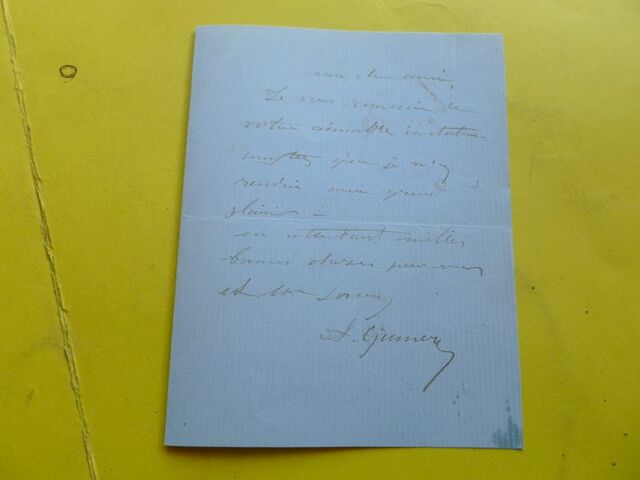 mon cher ami,
Je vous remercie de
votre aimable invitation
comptez que je m'y
rendrai avec grand
plaisir –
en attendant mille
bonnes choses pour vous
et Mme